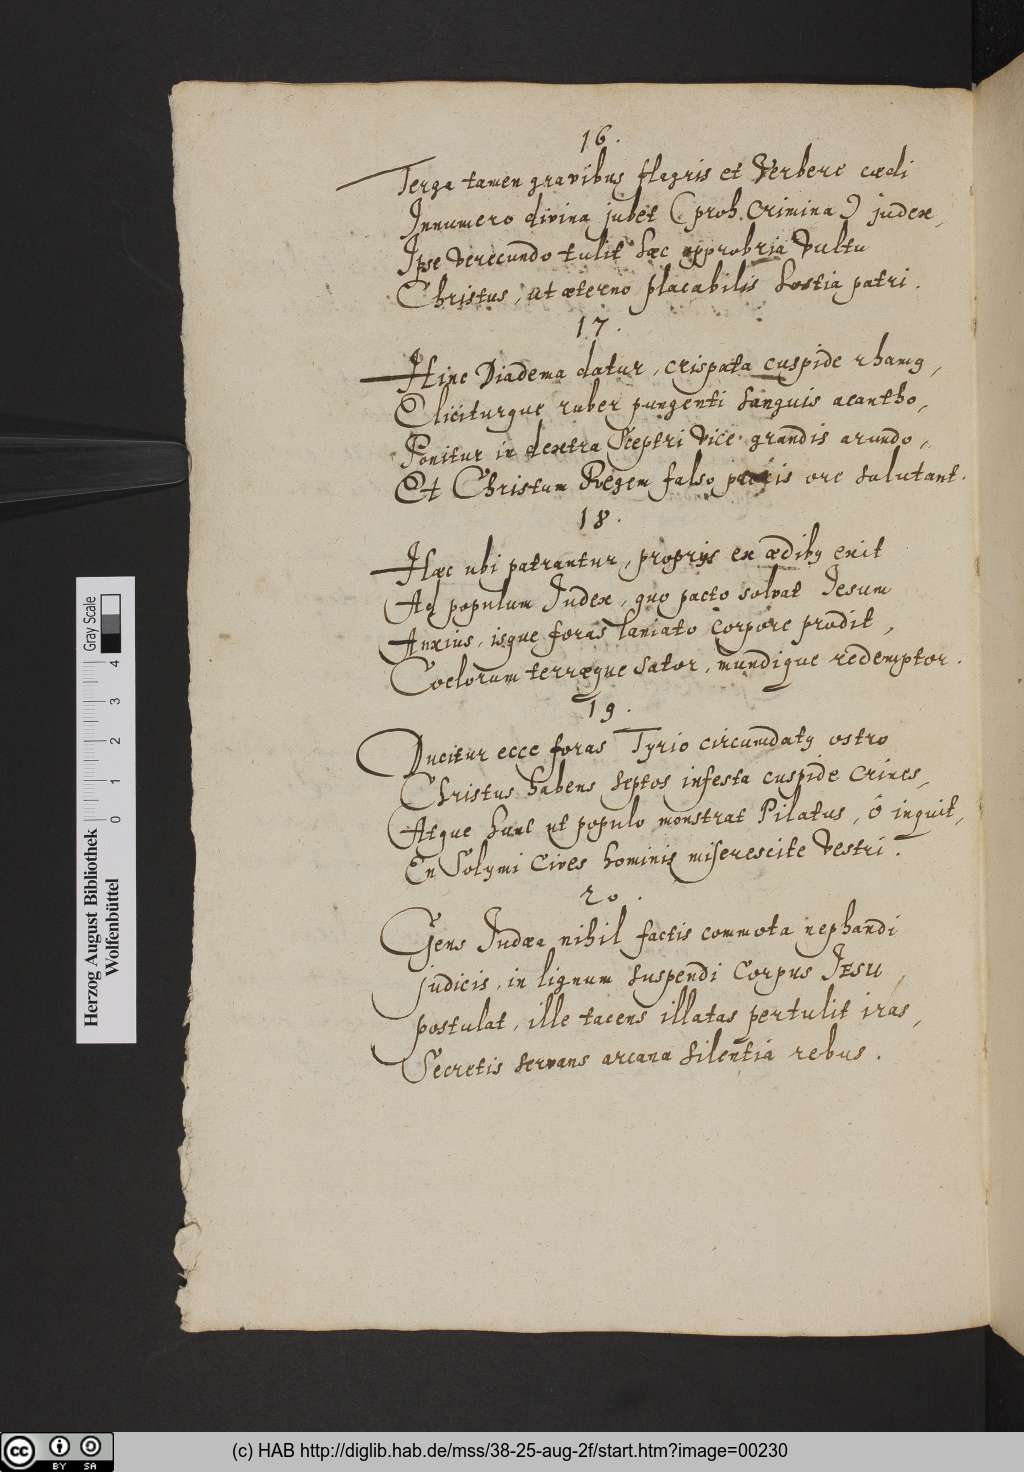 16.
Terga tamen gravibus flagris et Verbere cædi
Innumero divina jubet (proh crimina) judex,
Ipse verecundo tulit hæc opprobria Vultu
Christus, ut æterno placabilis hostia patri.
17.
Hinc Diadema datur, crispata cuspide rhamq,
Eliciturque ruber pungenti sanguis acantho,
Ponitur in dextra Sceptri vice grandis arundo,
Et Christum Regem falso ore salutant.
18.
Hæc ubi patrantur, proprijs ex ædibq exit
Ad populum Iudex, quo pacto solvat Iesum
Anxius, isque foras laniato corpore prodit,
Coelorum terræque sator, mundique redemptor.
19.
Ducitur ecce foras Tyrio circumdatq ostro
Christus habens septos infesta cuspide crines,
Atque hunc ut populo monstrat Pilatus, ô inquit,
En Solymi Cives hominis miserescite Vestri.
20.
Gens Iudæa nihil factis commota nephandi
judicis, in lignum suspendi Corpus IESU,
postulat, ille tacens illatas pertulit iras,
Secretis servans arcana silentia rebus.
Herzog August Bibliothek
Wolfenbüttel
Gray Scale
0 1 2 3 4
cc BY SA
(c) HAB http://diglib.hab.de/mss/38-25-aug-2f/start.htm?image=00230